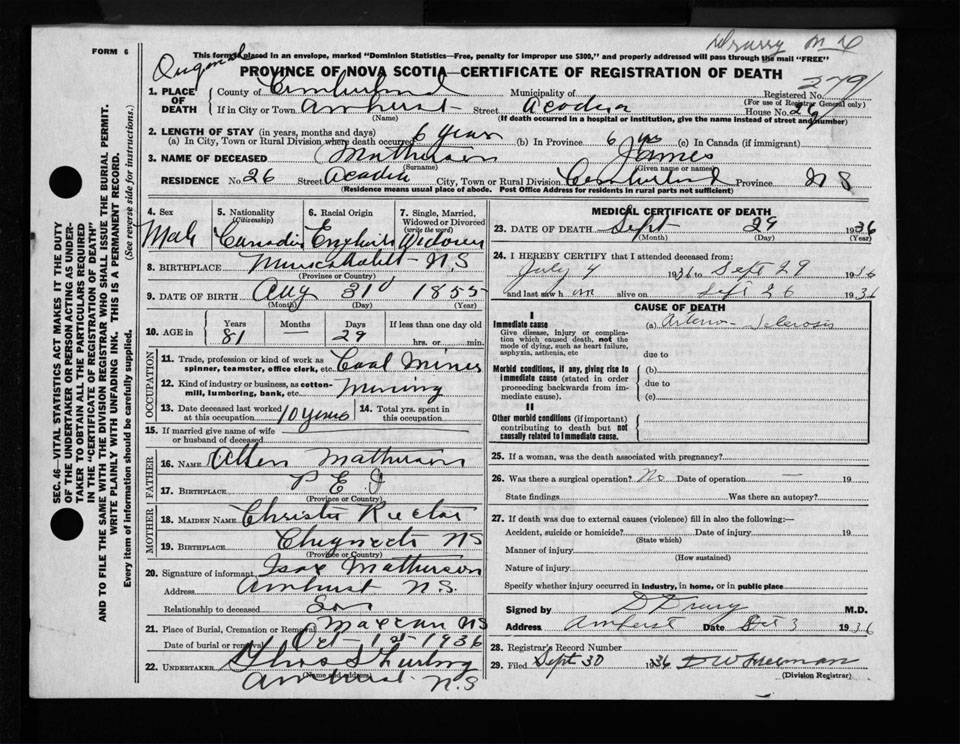 FORM 6
Drury M D
This form if placed in an envelope, marked "Dominion Statistics—Free, penalty for improper use $300," and properly addressed will pass through the mail "FREE"
PROVINCE OF NOVA SCOTIA—CERTIFICATE OF REGISTRATION OF DEATH
1. PLACE OF DEATH
County of Cumberland Municipality of Registered No. 2791
(For use of Registrar General only)
If in City or Town Amherst Street Acadia House No. 26
(Name) (If death occurred in a hospital or institution, give the name instead of street and number)
2. LENGTH OF STAY (in years, months and days)
(a) In City, Town or Rural Division where death occurred 6 years (b) In Province 6 yrs (c) In Canada (if immigrant)
3. NAME OF DECEASED Matheson James
(Surname) (Given name or names)
RESIDENCE No. 26 Street Acadia City, Town or Rural Division Cumberland Province N S
(Residence means usual place of abode. Post Office Address for residents in rural parts not sufficient)
SEC. 46—VITAL STATISTICS ACT MAKES IT THE DUTY
OF THE UNDERTAKER OR PERSON ACTING AS UNDER-
TAKER TO OBTAIN ALL THE PARTICULARS REQUIRED
IN THE "CERTIFICATE OF REGISTRATION OF DEATH"
AND TO FILE THE SAME WITH THE DIVISION REGISTRAR WHO SHALL ISSUE THE BURIAL PERMIT.
WRITE PLAINLY WITH UNFADING INK. THIS IS A PERMANENT RECORD.
Every item of information should be carefully supplied. (See reverse side for instructions.)
4. Sex
Male
5. Nationality
(Citizenship)
Canadian
6. Racial Origin
English
7. Single, Married,
Widowed or Divorced
(write the word)
Widower
8. BIRTHPLACE N.S
(Province or Country)
9. DATE OF BIRTH Aug 31 1855
(Month) (Day) (Year)
10. AGE in Years 81 Months — Days 29 If less than one day old
hrs. or min.
OCCUPATION
11. Trade, profession or kind of work as
spinner, teamster, office clerk, etc. Coal Miner
12. Kind of industry or business, as cotton-
mill, lumbering, bank, etc. Mining
13. Date deceased last worked
at this occupation 10 years
14. Total yrs. spent in
this occupation
15. If married give name of wife
or husband of deceased
FATHER
16. NAME Allen Matheson
17. BIRTHPLACE P E I
(Province or Country)
MOTHER
18. MAIDEN NAME Christy Rector
19. BIRTHPLACE N S
(Province or Country)
20. Signature of informant Matheson
Address Amherst N.S.
Relationship to deceased Son
21. Place of Burial, Cremation or Removal Maccan NS
Date of burial or removal Oct 1st 1936
22. UNDERTAKER
(Name and address)
Amherst N.S
MEDICAL CERTIFICATE OF DEATH
23. DATE OF DEATH Sept 29 1936
(Month) (Day) (Year)
24. I HEREBY CERTIFY that I attended deceased from:
July 4 1936 to Sept 29 1936
and last saw h im alive on Sept 26 1936
CAUSE OF DEATH
I
Immediate cause
Give disease, injury or complica-
tion which caused death, not the
mode of dying, such as heart failure,
asphyxia, asthenia, etc
(a) Arterio-Sclerosis
due to
Morbid conditions, if any, giving rise to
immediate cause (stated in order
proceeding backwards from im-
mediate cause).
(b)
due to
(c)
II
Other morbid conditions (if important)
contributing to death but not
causally related to immediate cause.
25. If a woman, was the death associated with pregnancy?
26. Was there a surgical operation? No Date of operation — 19
State findings Was there an autopsy?
27. If death was due to external causes (violence) fill in also the following:—
Accident, suicide or homicide? Date of injury 19
(State which)
Manner of injury
(How sustained)
Nature of injury
Specify whether injury occurred in industry, in home, or in public place
Signed by D Drury M.D.
Address Amherst Date Oct 3 1936
28. Registrar's Record Number
29. Filed Sept 30 1936 Freeman
(Division Registrar)